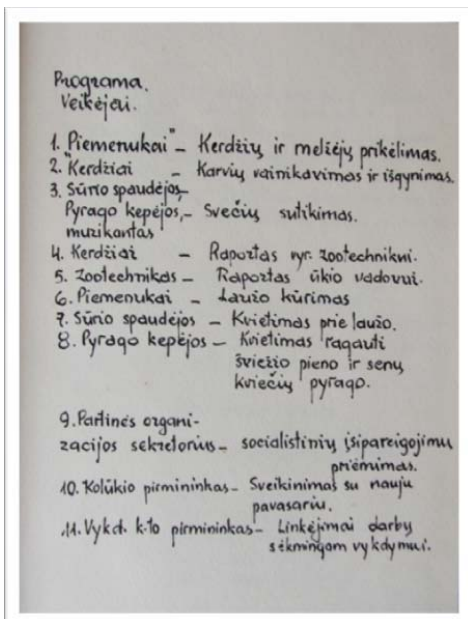 Programa.
Veikėjai.
1. "Piemenukai" – Kerdžių ir melžėjų prikėlimas.
2. "Kerdžiai – Karvių vainikavimas ir išgynimas.
3. Sūrio spaudėjos,–
Pyrago kepėjos, – Svečių sutikimas.
muzikantas
4. Kerdžiai – Raportas vyr. zootechnikui.
5. Zootechnikas – Raportas ūkio vadovui.
6. Piemenukai – Laužo kūrimas
7. Sūrio spaudėjos – Kvietimas prie laužo.
8. Pyrago kepėjos – Kvietimas ragauti
šviežio pieno ir senų
kviečių pyrago.
9. Partinės organi-
zacijos sekretorius – socialistinių įsipareigojimų
priėmimas.
10. Kolūkio pirmininkas – Sveikinimas su nauju
pavasariu.
11. Vykd. k-to pirmininkas – Linkėjimai darbų
sėkmingam vykdymui.